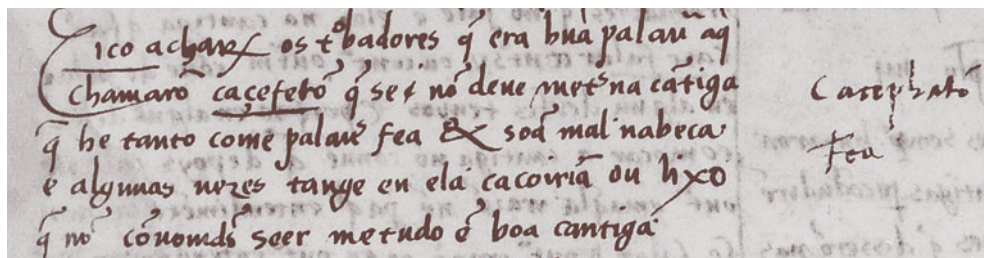 ico achar os tºbadores q̃ era hũa palau aq̃
chamarõ caçefetõ q̃ se nõ deue met̃ na cãtiga
q̃ he tanto come palau fea & soa mal nabeca
e algunas uezes tange en ela cacoiriã ou lixo
q̃ nõ seer metudo ẽ boa cantiga
Cacephatõ
fea